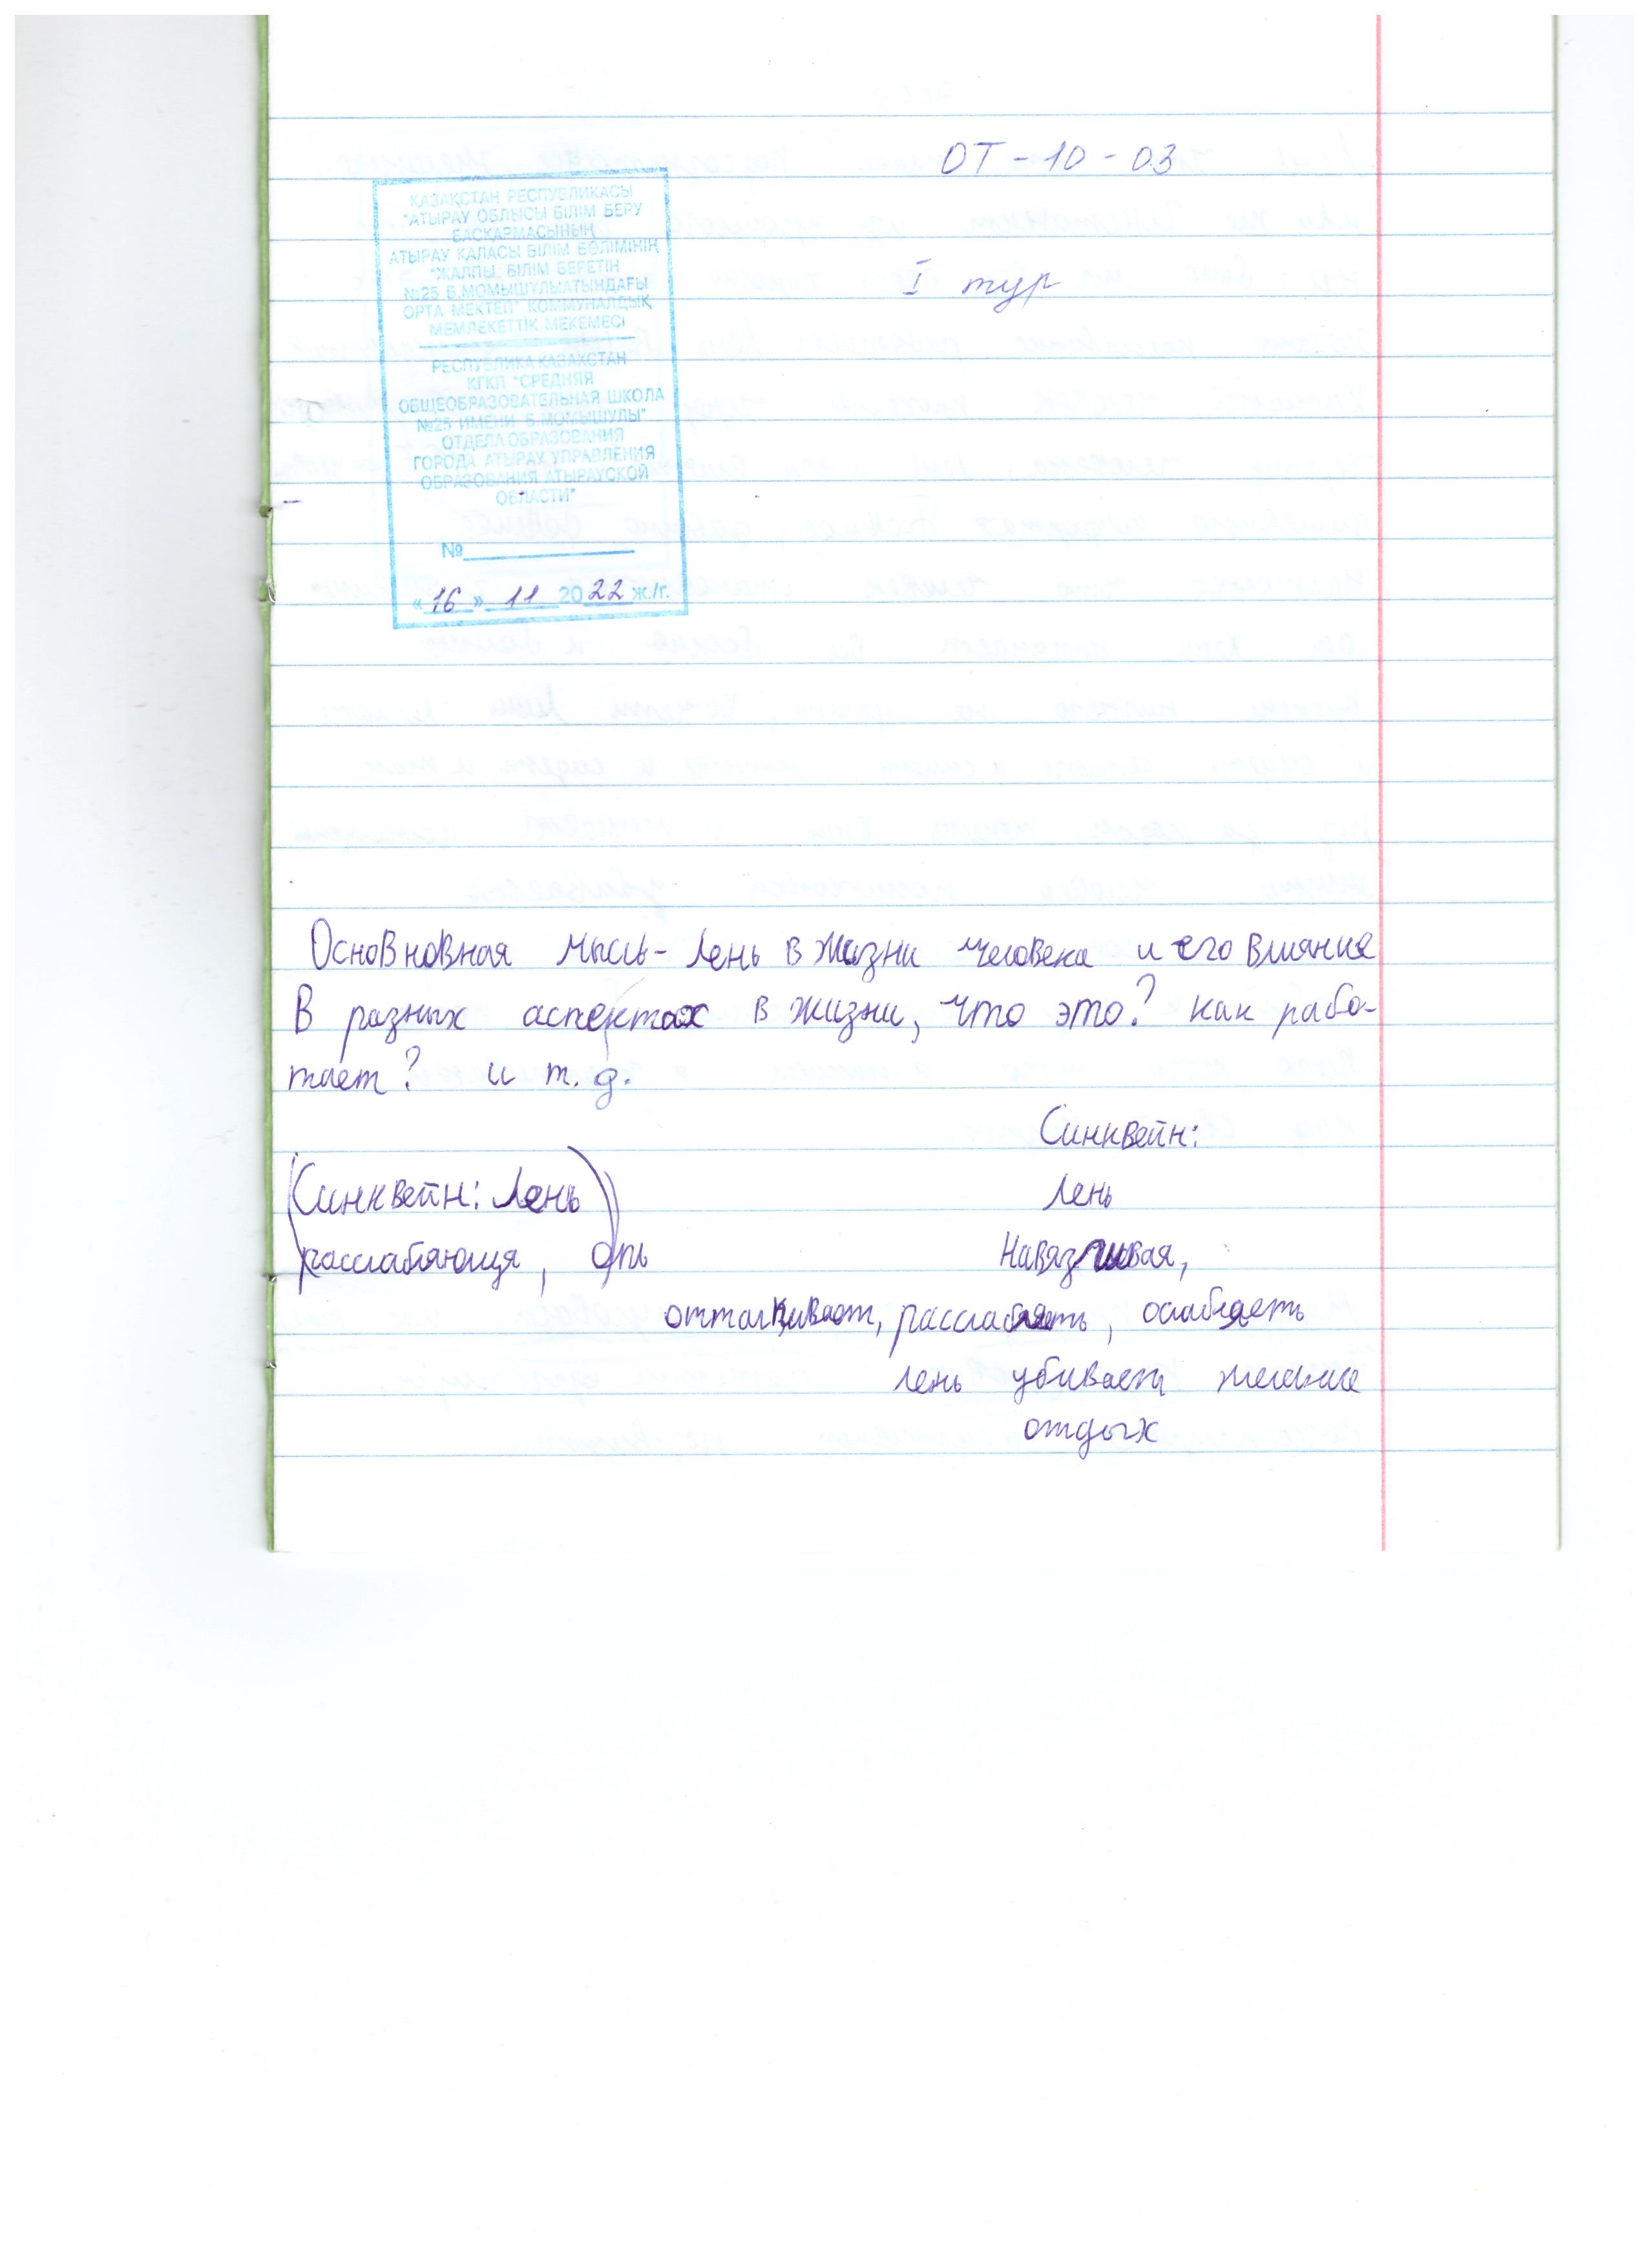 ОТ - 10 - 03
ҚАЗАҚСТАН РЕСПУБЛИКАСЫ
"АТЫРАУ ОБЛЫСЫ БІЛІМ БЕРУ
БАСҚАРМАСЫНЫҢ
АТЫРАУ ҚАЛАСЫ БІЛІМ БӨЛІМІНІҢ
"ЖАЛПЫ БІЛІМ БЕРЕТІН
№25 Б.МОМЫШУЛЫАТЫНДАҒЫ
ОРТА МЕКТЕП" КОММУНАЛДЫҚ
МЕМЛЕКЕТТІК МЕКЕМЕСІ
РЕСПУБЛИКА КАЗАХСТАН
КГКП "СРЕДНЯЯ
ОБЩЕОБРАЗОВАТЕЛЬНАЯ ШКОЛА
№25 ИМЕНИ Б.МОМЫШУЛЫ"
ОТДЕЛА ОБРАЗОВАНИЯ
ГОРОДА АТЫРАУ УПРАВЛЕНИЯ
ОБРАЗОВАНИЯ АТЫРАУСКОЙ
ОБЛАСТИ"
№
« 16 » 11 2022 ж./г.
I тур
Основновная мысль - лень в жизни человека и его влияние
в разных аспектах в жизни, что это? как рабо-
тает? и т. д.
Синквейн:
(Синквейн: Лень)
расслабяющя,
Лень
Навязчивая,
отталкивает, расслабляеть, ослабяеть
лень убивает желание
отдых